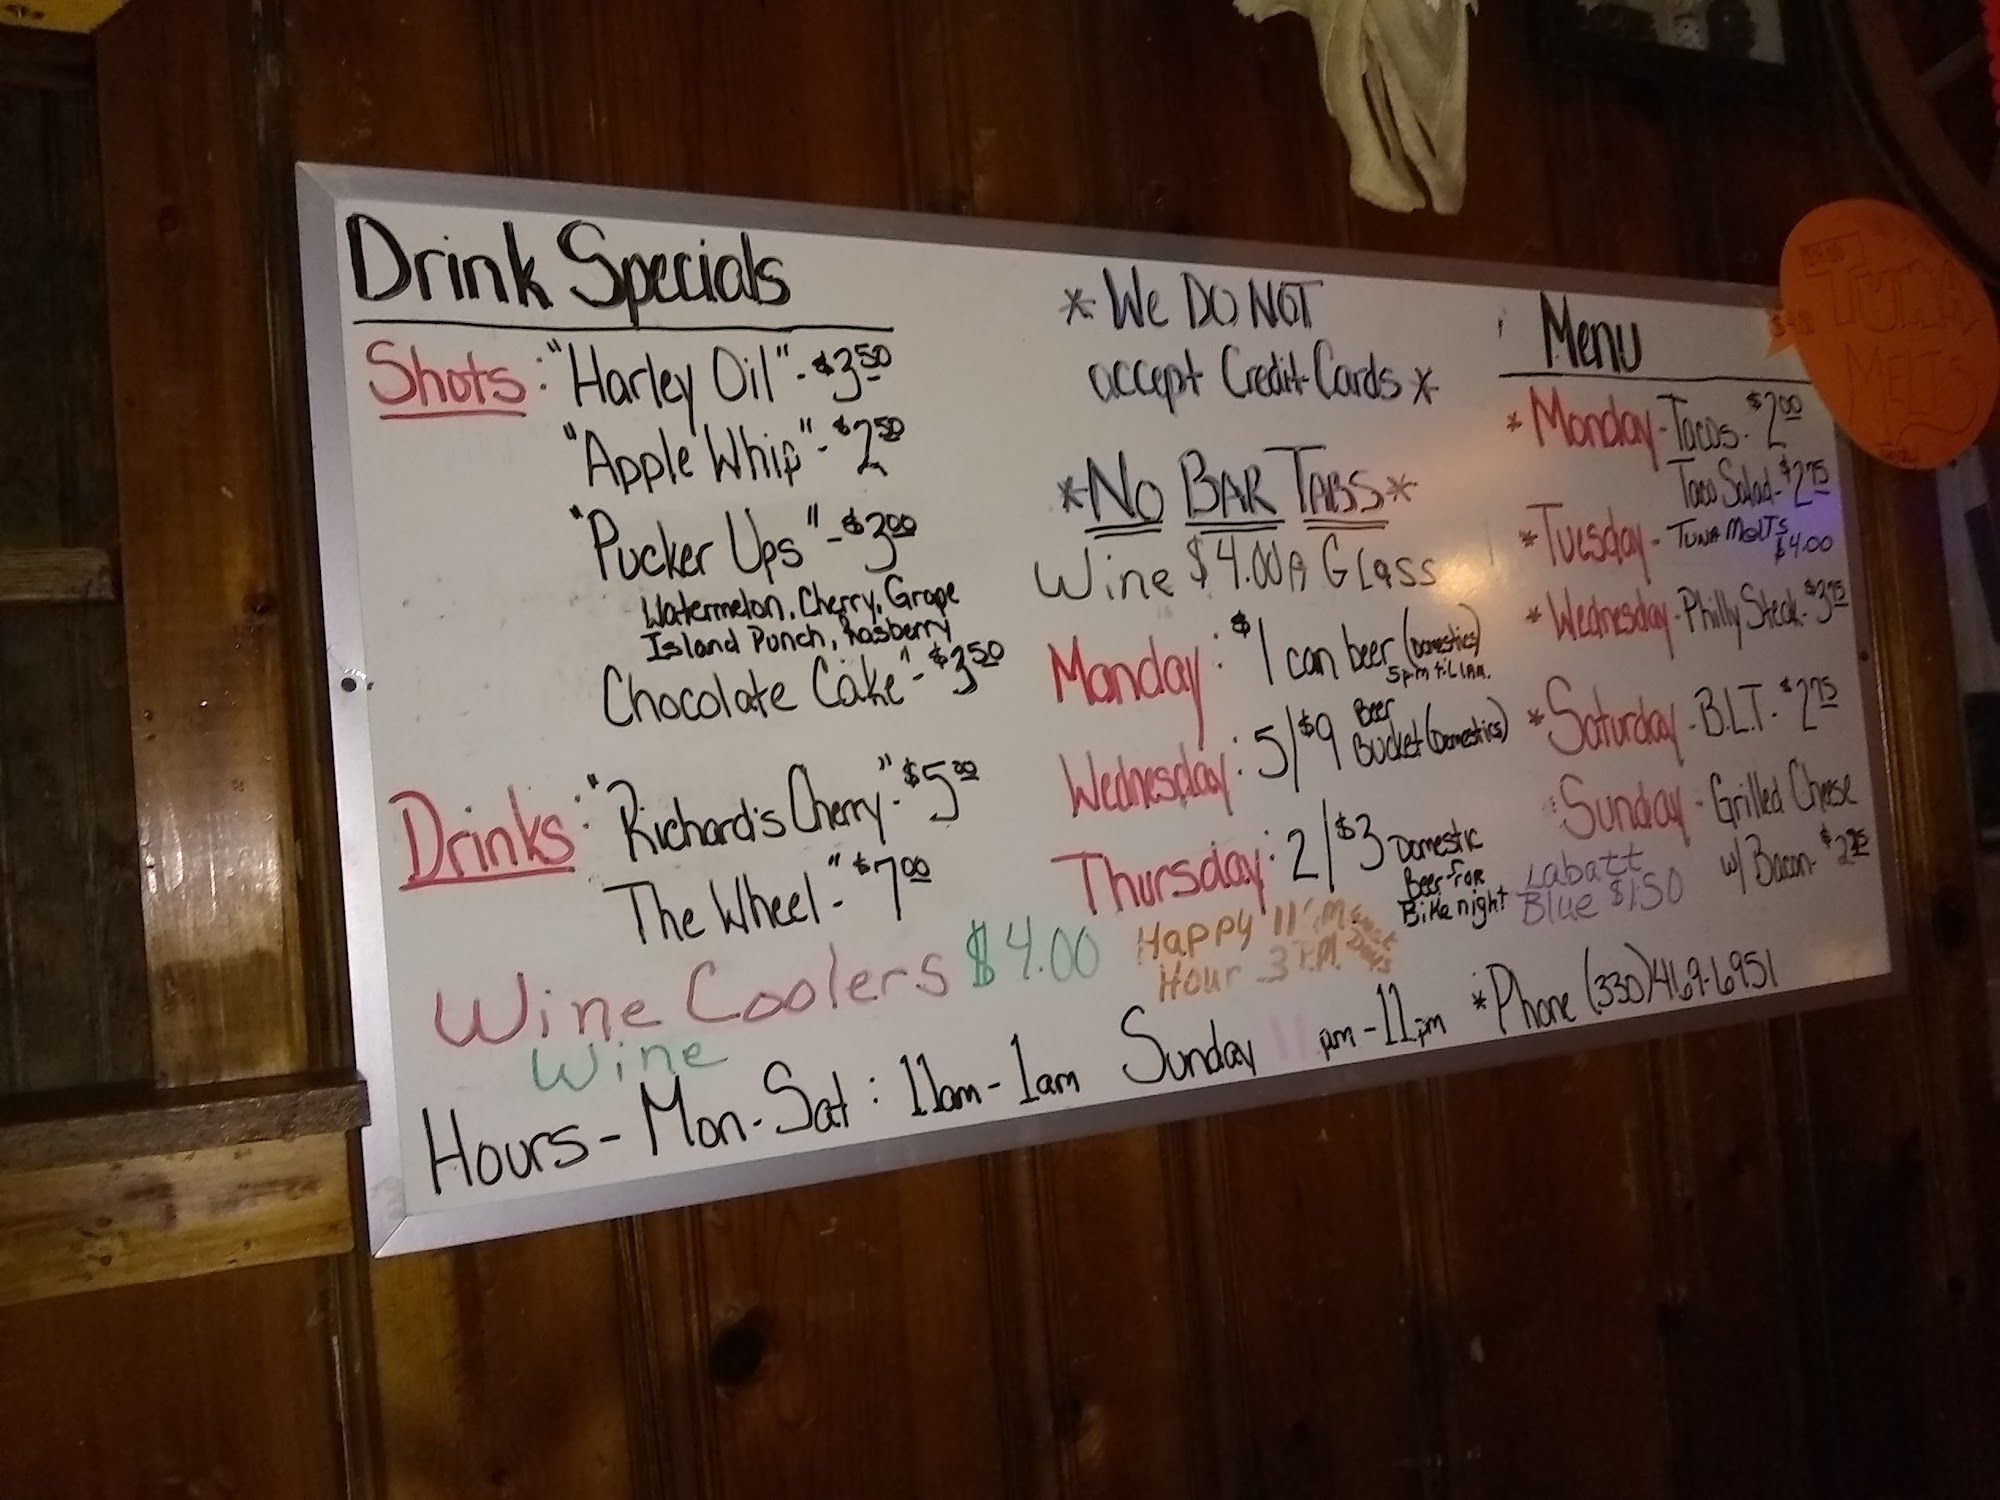 Drink Specials
Shots: "Harley Oil" - $3.50
"Apple Whip" - $2.50
"Pucker Ups" - $3.00
Watermelon, Cherry, Grape
Island Punch, Rasberry
Chocolate Cake" - $3.50
Drinks: "Richard's Cherry" - $5.00
The Wheel" - $7.00
Wine Coolers $4.00
Wine
* We DO NOT
accept Credit Cards *
*No BAR TABS*
Wine $4.00 A GLass
Monday: $1 can beer (Domestics)
5pm til 1AM.
Wednesday: 5/$9 Beer
Bucket (Domestics)
Thursday: 2/$3 Domestic
Beer for
Bike night
Happy
Hour 3 P.M.
Labatt
Blue $1.50
Menu
* Monday - Tacos - $2.00
Taco Salad - $2.75
* Tuesday - TUNA MELTS
$4.00
* Wednesday - Philly Steak - $3.75
* Saturday - B.L.T. - $2.75
Sunday - Grilled Cheese
w/ Bacon -
Hours - Mon - Sat : 11am - 1am Sunday pm - 11pm *Phone (330)469-6951
TUNA
MELTS